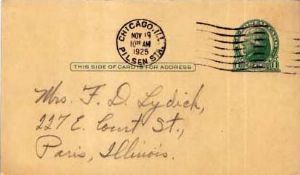 CHICAGO, ILL.
NOV 19
10 AM
1925
PILSEN STA.
THIS SIDE OF CARD IS FOR ADDRESS
1
Mrs. F. D. Lydick,
227 E. Court St.,
Paris, Illinois.